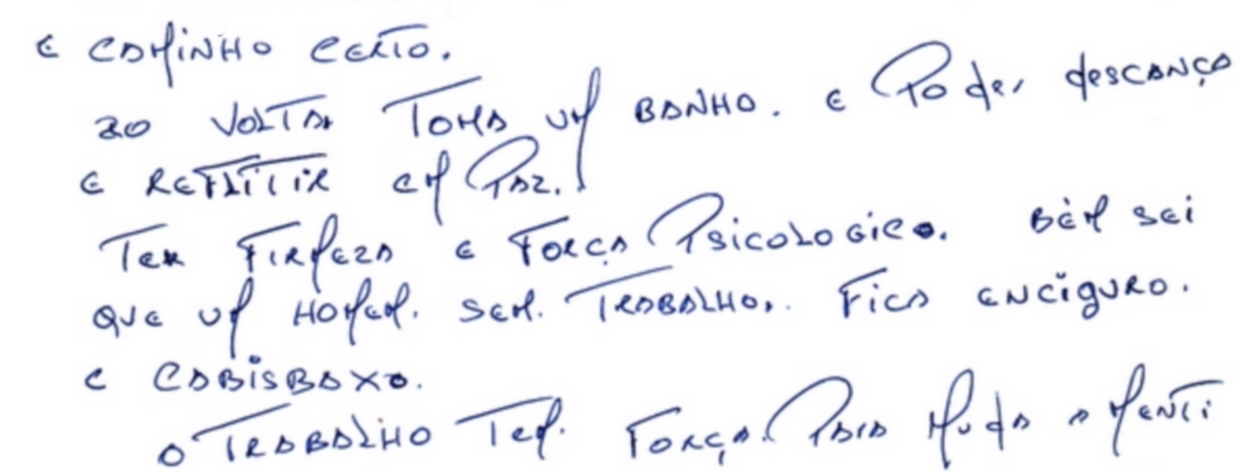 e caminho certo.
ao voltar toma um banho. e Poder descança
e refltir em Paz.
Ter Firmeza e Força Psicologico. bém sei
que um homem. sem. Trabalho.. Fica enciguro.
e cabisbaxo.
o Trabalho Tem. Força. Para Muda a Menti